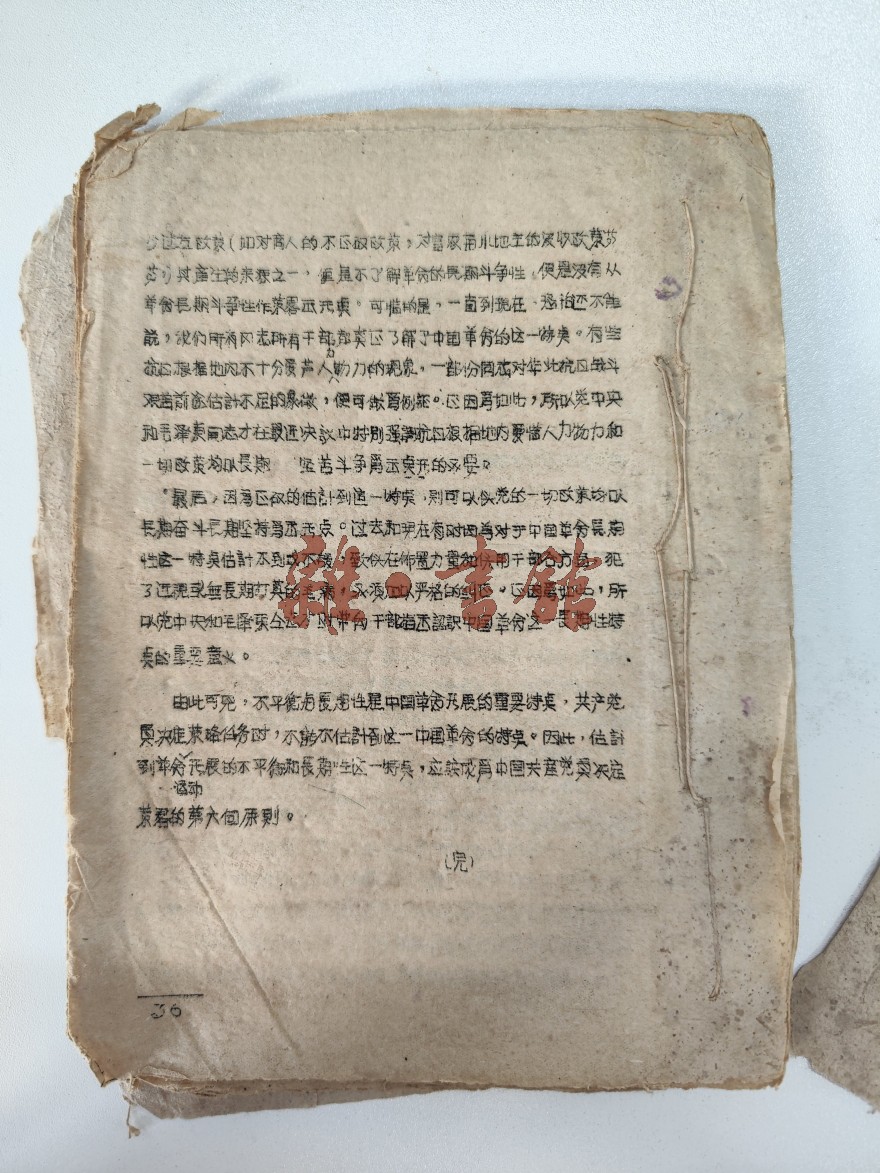 政策（如对商人的不正确政策，对富农与小地主的没收政策等
等）其产生的来源之一，便是不了解革命的長期斗争性，便是没有从
革命長期斗争性作策畧出元点。可惜的是，一直到现在，恐怕还不能
說，我們所有同志所有干部都真正了解了中国革命的这一特点。有些
抗日根据地内不十分爱惜人力物力的现象，一部份同志对华北抗日战斗
艰苦前途估計不足的象徵，便可做为例証。正因为如此，所以党中央
和毛澤東同志才在最近决議中特别强調抗日根据地内要惜人力物力和
一切政策均以長期 坚苦斗争為出点的必要。
最后，因为正确的估計到這一特点，则可以使党的一切政策均以
長期奋斗長期坚持為出元点。过去和现在有时因为对于中国革命長期
性这一特点估計不到或不够，致使在佈置力量和使用干部各方面，犯
了近視或無長期打算的毛病，必須加以严格的纠正。正因為如此，所
以党中央和毛澤東同志才时常向干部指出認識中国革命这一長期性特
点的重要意义。
由此可见，不平衡与長期性是中国革命发展的重要特点，共产党
員决定策略任务时，不能不估計到这一中国革命的特点。因此，估計
到革命运动发展的不平衡和長期性这一特点，应該成為中国共產党員决定
策畧的第六個原则。
（完）
36
雜·書館